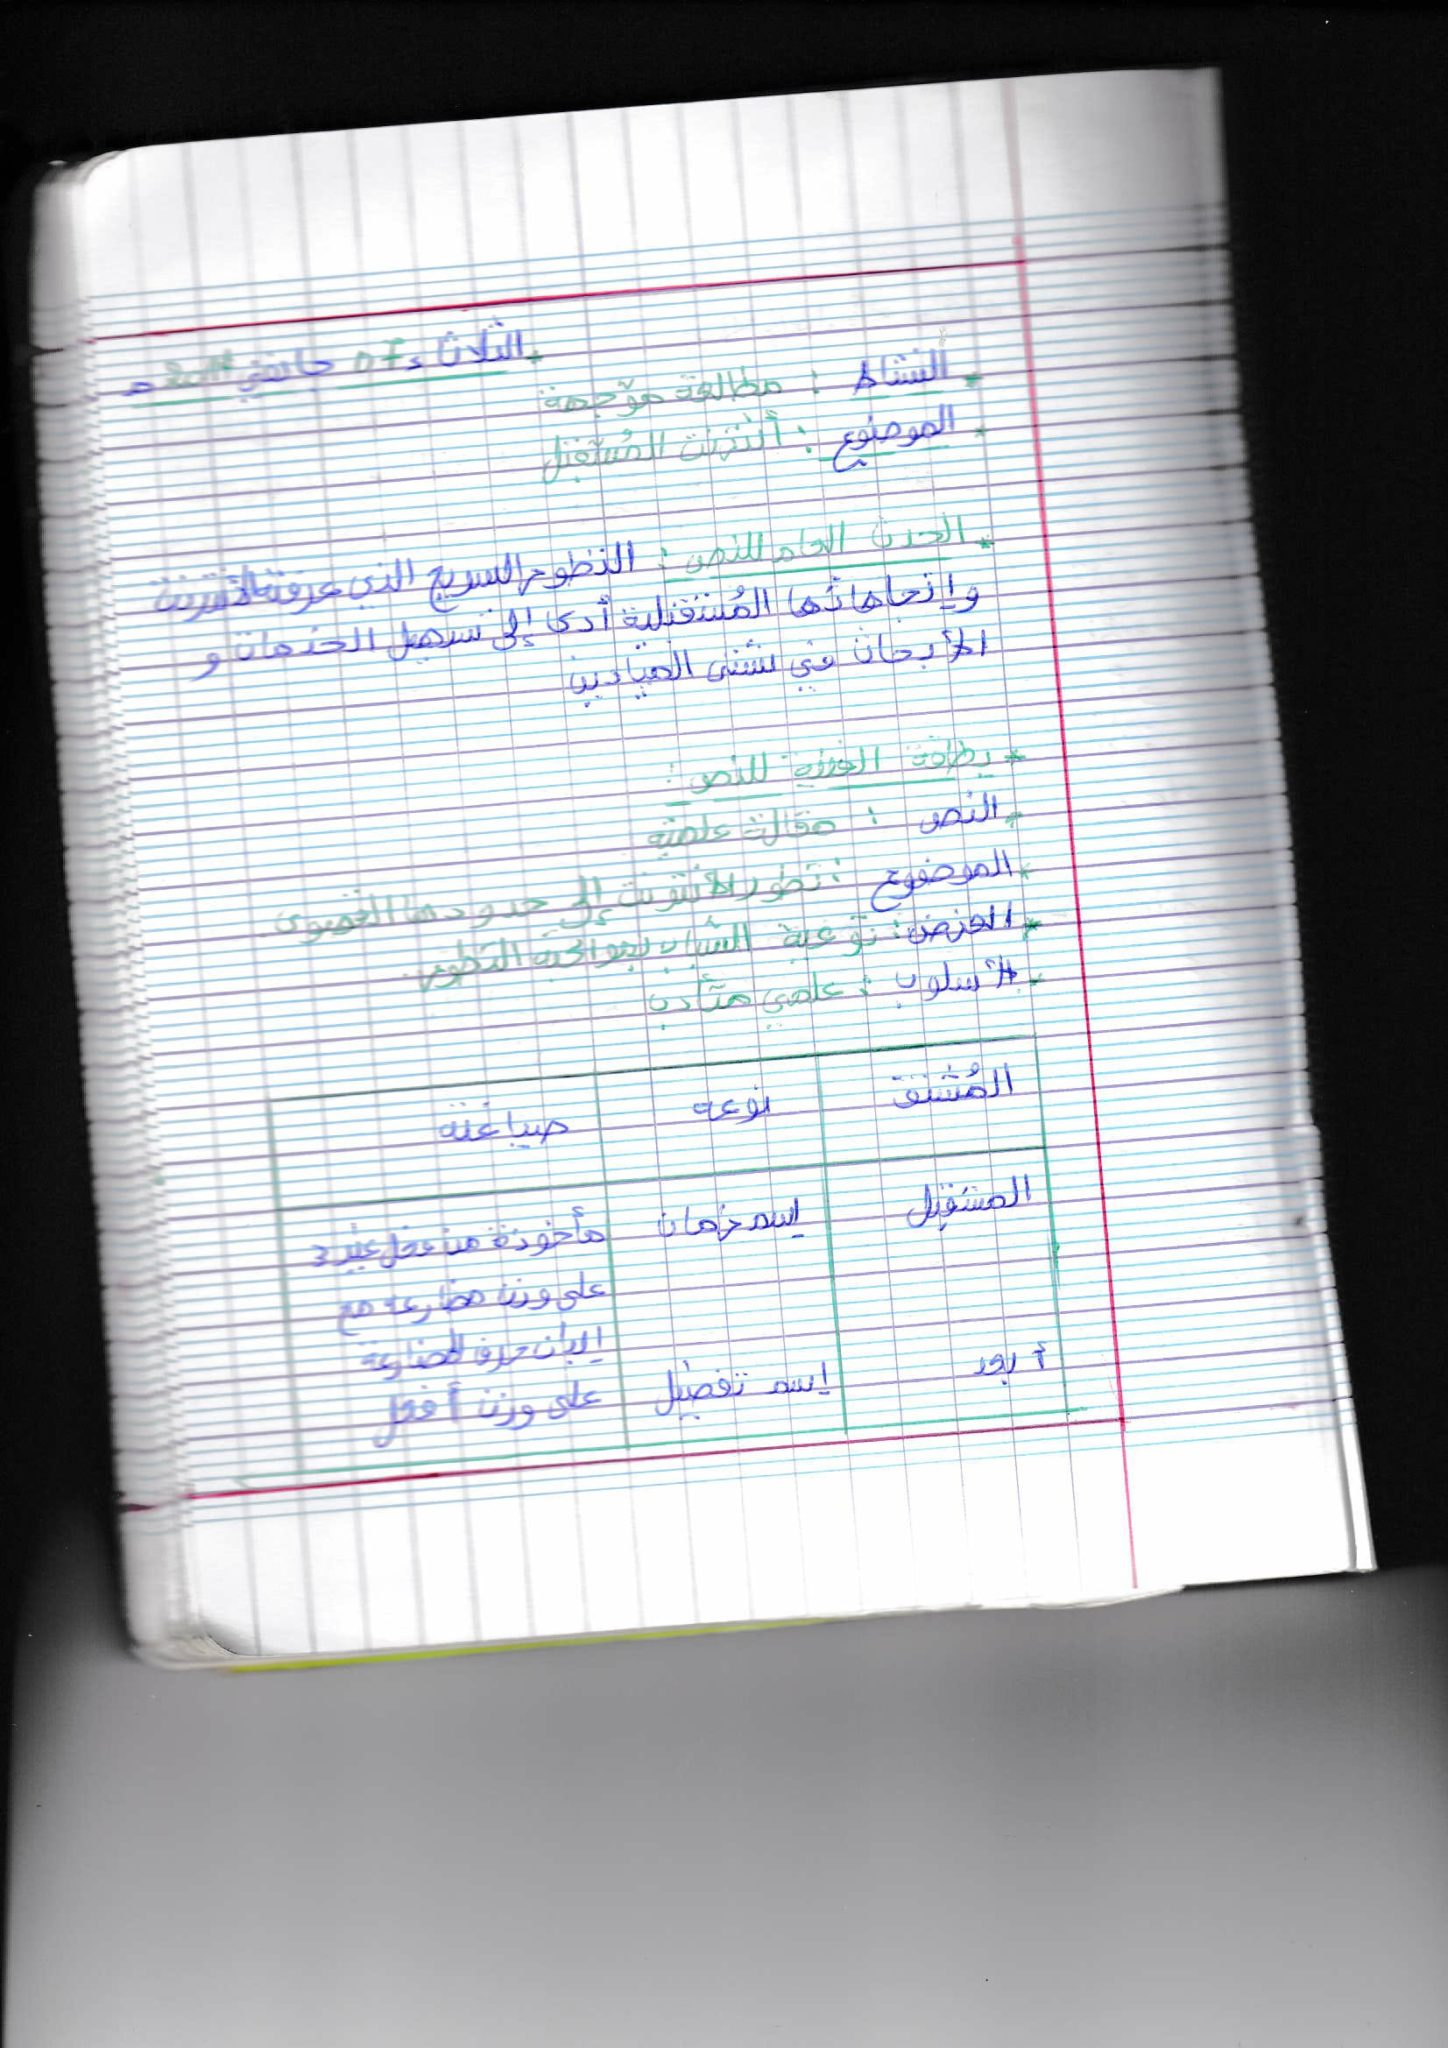 الثلاثاء 07 جانفي
النشاط : مطالعة موجهة
الموضوع : أنترنت المُستقبل
الحدث العام للنص : التطور السريع الذي عرفته الأنترنت
وإتجاهاتها المُستقبلية أدى إلى تسهيل الخدمات و
الأبحاث في شتى الميادين
بطاقة الفنية للنص :
النص : مقالة علمية
الموضوع : تطور الأنترنت إلى حدودها القصوى
الغرض : توعية الشباب بمواكبة التطور
الأسلوب : علمي متأدب
المُشتق نوعه صياغته
المستقبل إسم زمان مأخوذة من فعل غير 3
على وزن مضارعه مع
إبدال حرف المضارعة
أبعد إسم تفضيل على وزن أفعل